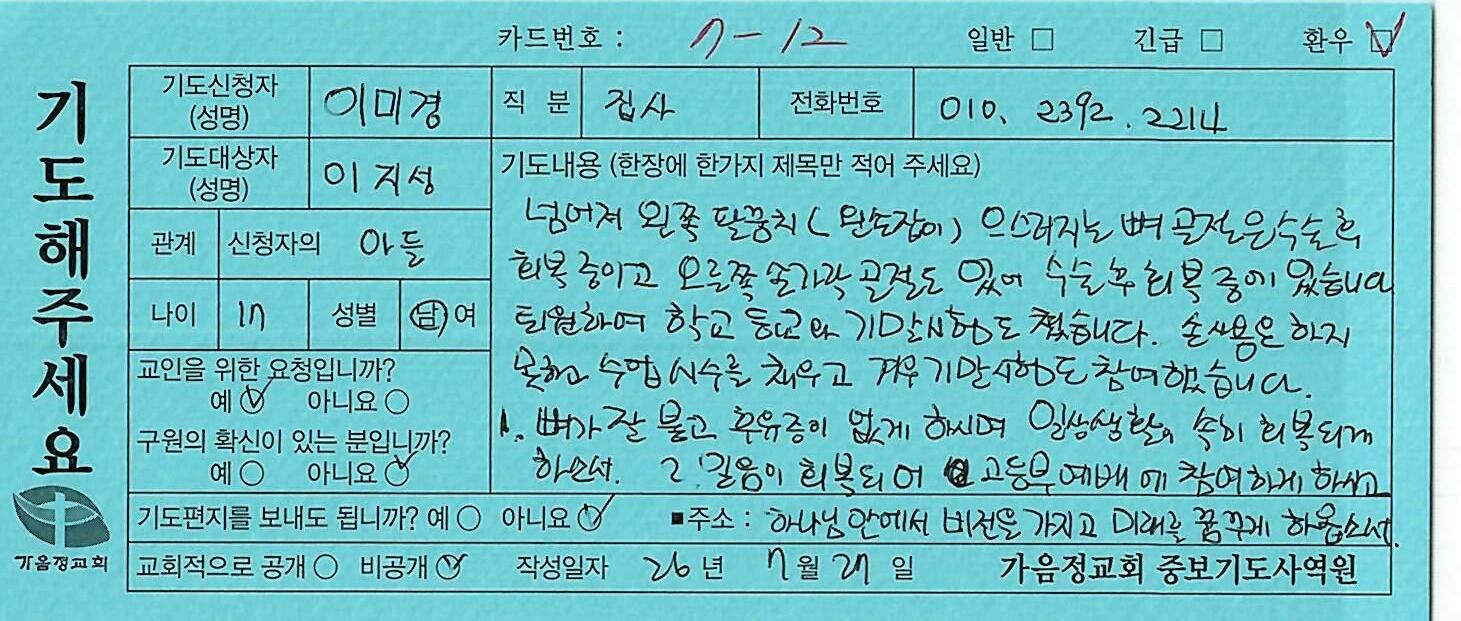 카드번호 : 7-12 일반 □ 긴급 □ 환우 ☑
기도해주세요
기도신청자 (성명) 이미경 직 분 집사 전화번호 010. 2392. 2214
기도대상자 (성명) 이지성
관계 신청자의 아들
나이 17 성별 남 여
교인을 위한 요청입니까?
예 ☑ 아니요 ○
구원의 확신이 있는 분입니까?
예 ○ 아니요 ☑
기도내용 (한장에 한가지 제목만 적어 주세요)
넘어져 왼쪽 팔꿈치 (왼손잡이) 으스러지는 뼈 골절은 수술후
회복 중이고 오른쪽 손가락 골절도 있어 수술후 회복 중에 있습니다
퇴원하여 학교 등교와 기말시험도 쳤습니다. 손사용은 하지
못하고 수업시수를 채우고 겨우 기말시험도 참여했습니다.
1. 뼈가 잘 붙고 후유증이 없게 하시며 일상생활이 속히 회복되게
하소서. 2. 믿음이 회복되어 고등부예배에 참여하게 하시고
기도편지를 보내도 됩니까? 예 ○ 아니요 ☑ ■주소 : 하나님안에서 비전을 가지고 미래를 꿈꾸게 하옵소서.
교회적으로 공개 ○ 비공개 ☑ 작성일자 26 년 7 월 27 일 가음정교회 중보기도사역원
가음정교회